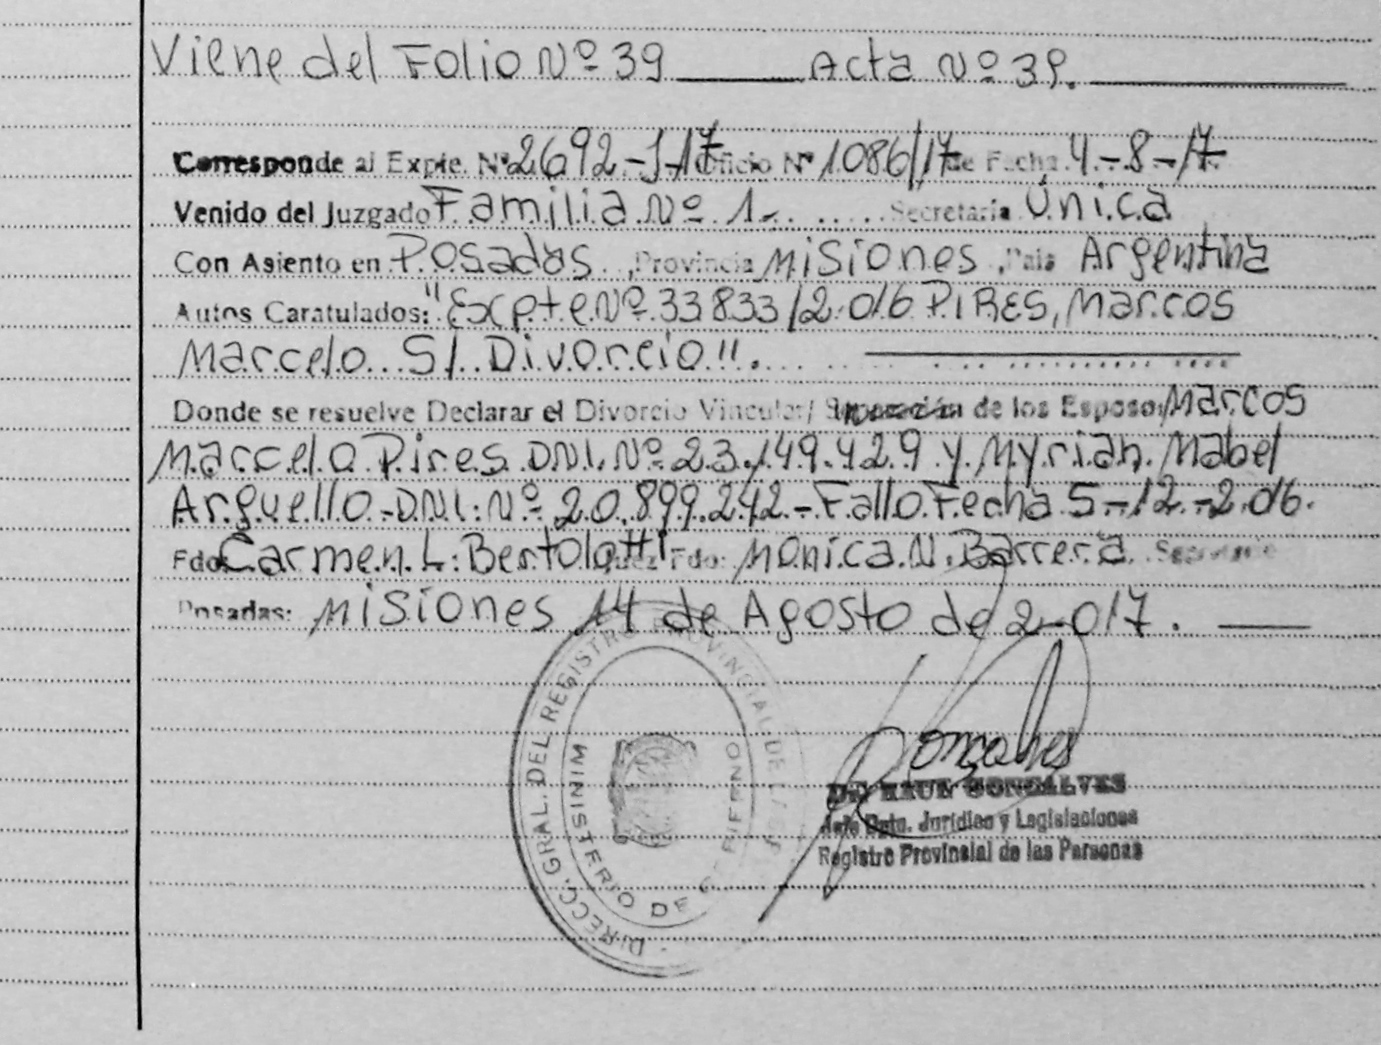 Viene del Folio Nº 39 ____ Acta Nº 39.
Corresponde al Expte. Nº 2692-J-17 Oficio Nº 1086/17 de Fecha 4-8-17
Venido del Juzgado Familia Nº 1. Secretaría Única
Con Asiento en Posadas, Provincia Misiones, País Argentina
Autos Caratulados: "Expte Nº 33833/2.016 PIRES, Marcos
Marcelo S/ Divorcio".
Donde se resuelve Declarar el Divorcio Vincular/ Separación de los Esposo Marcos
Marcelo Pires DNI. Nº 23.149.429 y Myrian Mabel
Arguello-DNI: Nº 20.899.242.- Fallo Fecha 5-12-2.016.
Fdo Carmen L. Bertolotti- Juez Fdo: Mónica N. Barrera. Secretaria
Posadas: Misiones 14 de Agosto de 2.017.
DIRECC. GRAL. DEL REGISTRO PROVINCIAL DE LAS P
MINISTERIO DE GOBIERNO
Goncalves
Dr. RAUL GONCALVES
Jefe Dpto. Jurídico y Legislaciones
Registro Provincial de las Personas